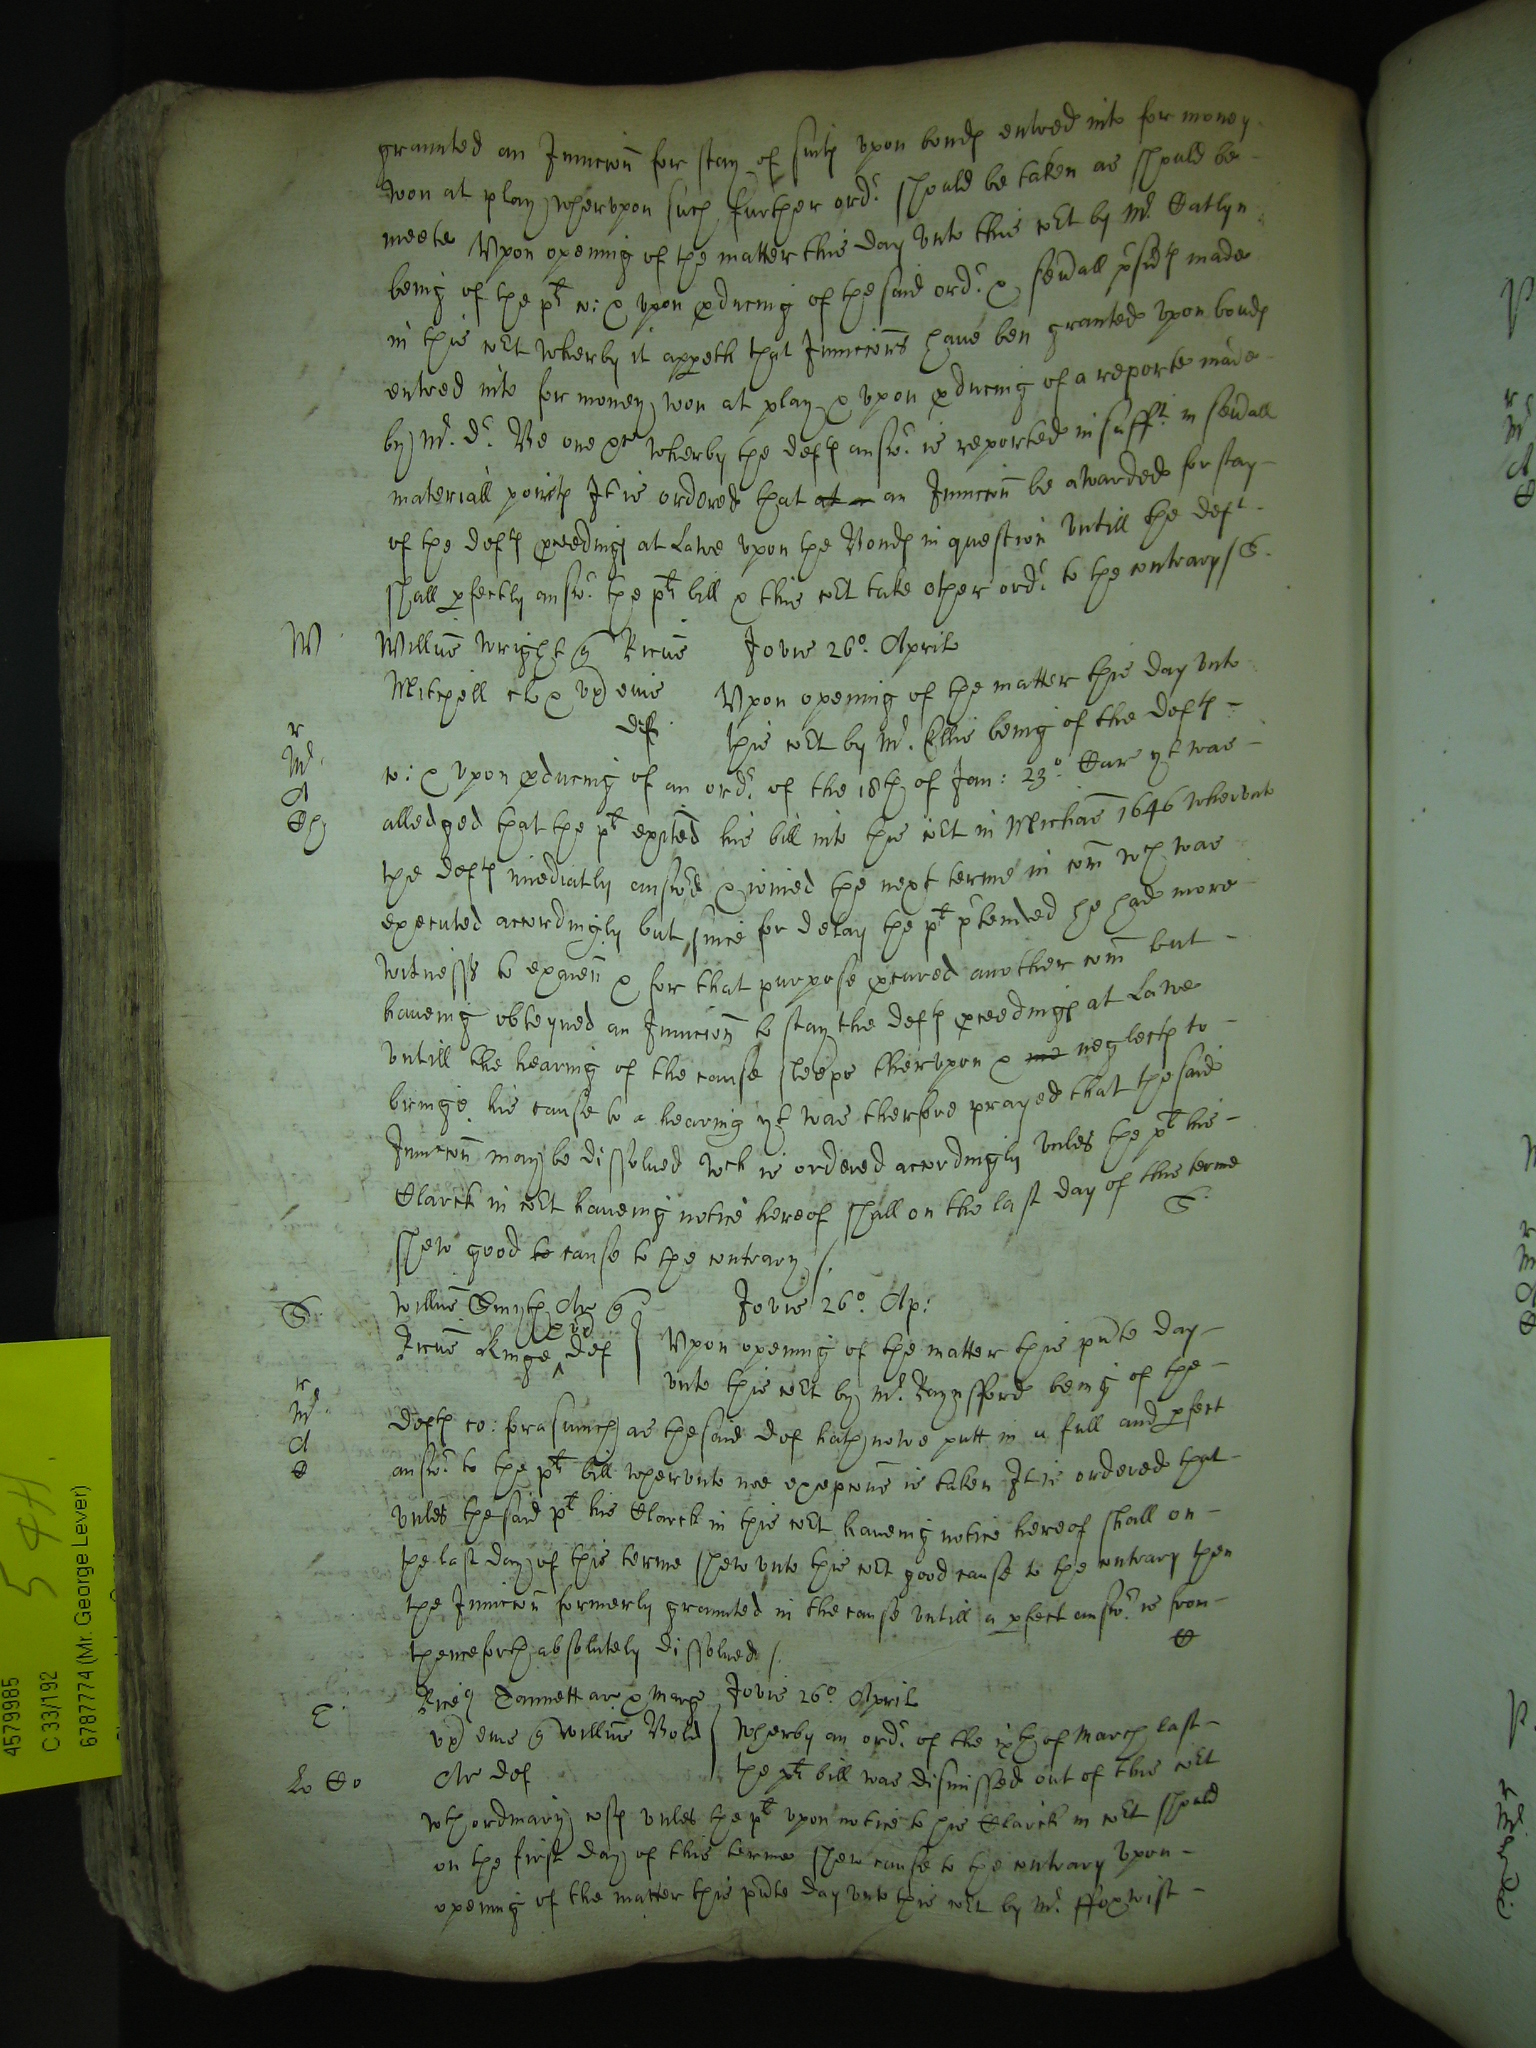 graunted an Iniuccōn for stay of suits vpon bonds entred into for money
won at play whervpon such further ordr. should be taken as should be
meete Vpon opening of the matter this day vnto this cort by Mr. Catlyn
being of the plts co: & vpon pducing of the said ordr. & seu'all p'sidts made
in this cort wherby it appeth that Iniuccōns haue ben granted vpon bonds
entred into for money won at play & vpon pducing of a reporte made
by Mr. dr. one &c wherby the defts answr. is reported insufft. in seu'all
materiall points It is ordered that at a an Iniuccōn be awarded for stay
of the defts pceedings at Lawe vpon the Bonds in question Vntill the deft
shall pfectly answr. the plts bill & this cort take other ordr. to the contrary / S.
W
Willūs Wright q Ricūs
Iovis 26o. Aprilis
Mitchell cl & Vx eius
def
Vpon opening of the matter this day vnto
this cort by Mr. Ellis being of the defts
r
Mr.
A
co: & vpon pducing of an ordr. of the 18th of Jan: 23o. Car yt was
alledged that the plt exited his bill into this cort in Michās 1646 Whervnto
the defts imediatly answred & ioined the next terme in com wch was
executed accordingly but since for delay the plt p'tended he had more
witnesses to exāīen & for that purpose pcured another com but
haueing obteyned an Iniuccōn to stay the defts pceedings at Lawe
Vntill the hearing of the cause sleeps thervpon & neglects to
bringe his cause to a hearing yt was therfore prayed that the said
Iniuccōn may be dissolued wch is ordered accordingly vnles the plt his
Clarck in cort haueing notice hereof shall on the last day of this terme
shew good to cause to the contrary /.
S.
S.
Willūs Smyth Ar q
Iovis 26o. Ap:
& vx
Ricūs Kinge ^ def
Vpon opening of the matter this pn̄te day
vnto this cort by Mr. Raynsford being of the
r
Mr.
A
defts co: forasmuch as the said def hath nowe putt in a full and pfect
answr. to the plts bill whervnto noe excepcōns is taken It is ordered that
vnles the said plt his Clarck in this cort haueing notice hereof shall on
the last day of this terme shew vnto this cort good cause to the contrary then
the Iniuccōn formerly graunted in the cause Vntill a pfect answr. is from
thenceforth absolutely dissolued /.
Iovis 26o. Aprilis
vx eius q Willūs Bold
Wherby an ordr. of the ixth of March last
Ar def
the plts bill was dismissed out of this cort
wth ordinary costs vnles the plt vpon notice to his Clarck in cort should
on the first day of this terme shew cause to the contrary Vpon
opening of the matter this pn̄te day vnto this cort by Mr. ffoxwist
4579985
C 33/192
6787774 (Mr. George Lever)